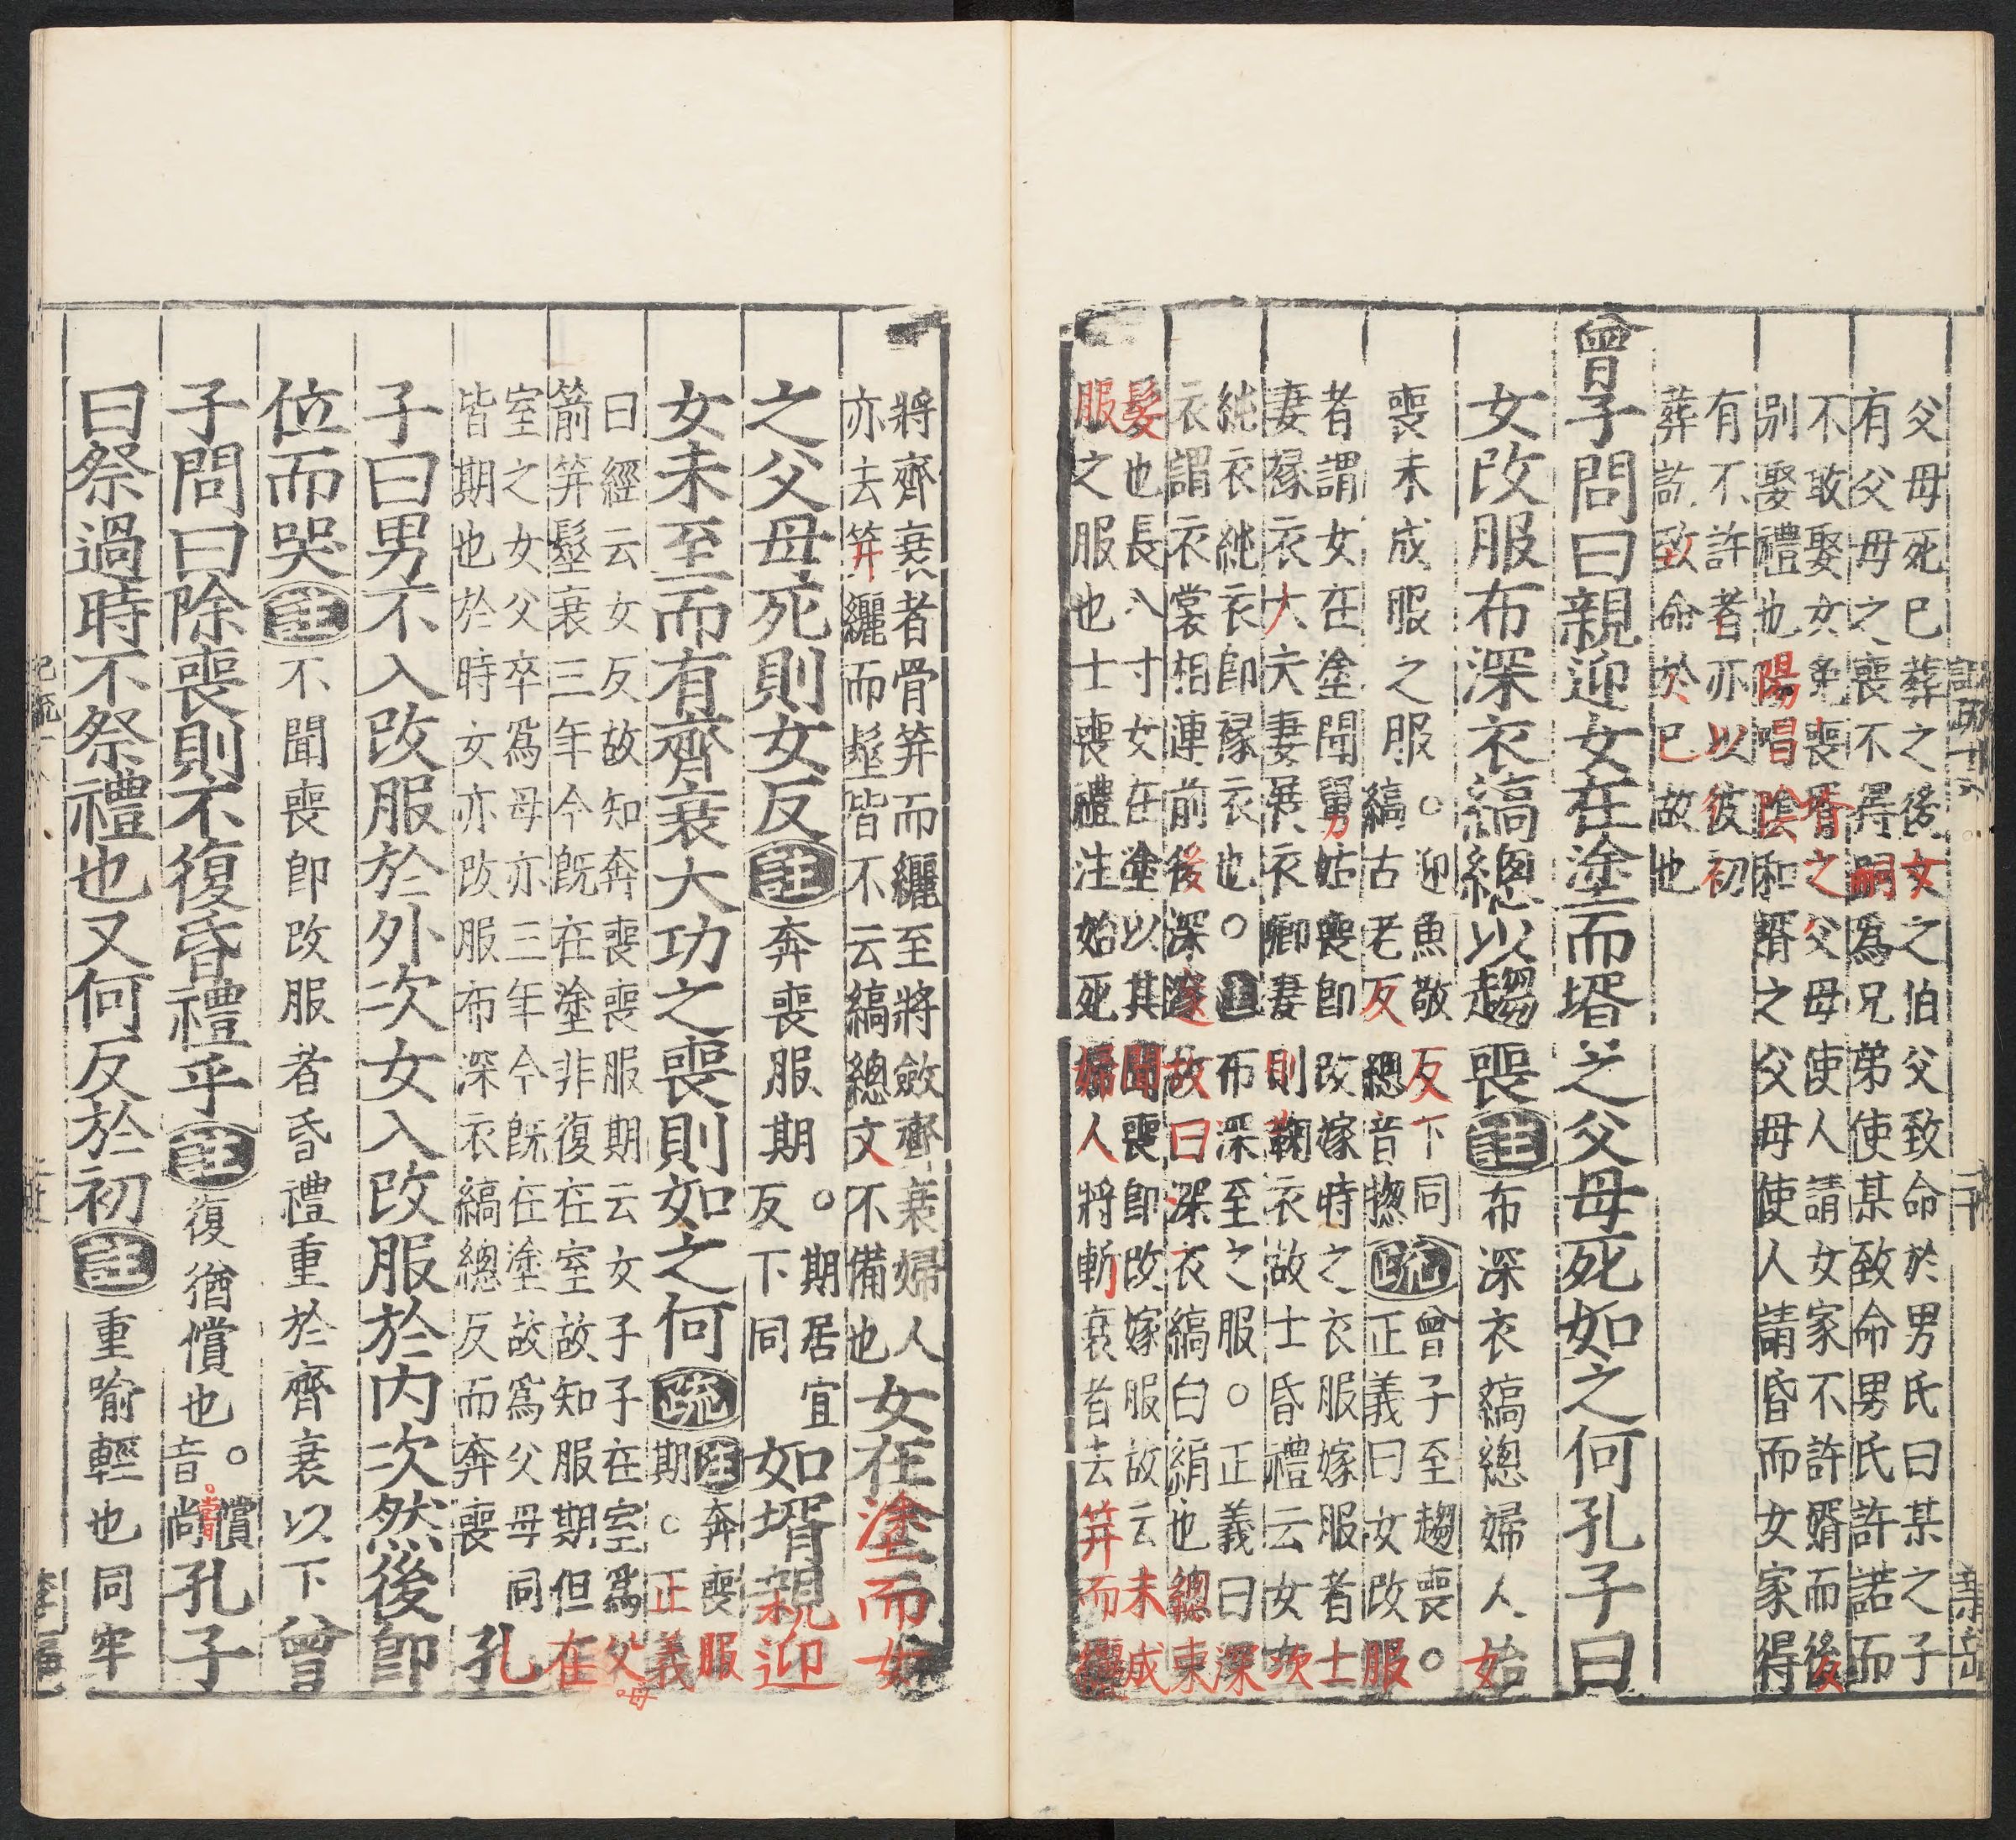 父母死已葬之後女之伯父致命於男氏曰某之子
有父母之喪不得嗣爲兄弟使某致命男氏許諾而
不敢娶女免喪壻之父母使人請女家不許婿而後
別娶禮也陽唱隂和婿之父母使人請昏而女家得
有不許者亦以彼初
葬訖致命於已故也
曾子問曰親迎女在塗而壻之父母死如之何孔子曰
女改服布深衣縞總以趨喪
註布深衣縞總婦人始
喪未成服之服
○迎魚敬反下同
縞古老反總音揔
疏曾子至趨喪○
正義曰女改服
者謂女在塗聞舅姑喪卽改嫁時之衣服嫁服者士
妻褖衣大夫妻展衣卿妻則鞠衣故士昏禮云女次
純衣純衣卽褖衣也○註布深至之服○正義曰深
衣謂衣裳相連前後深邃故曰深衣縞白絹也總束
髮也長八寸女在塗以其聞喪卽改嫁服故云未成
服之服也士喪禮注始死婦人將斬衰者去笄而纚
將齊衰者骨笄而纚至將斂齊衰婦人
亦去笄纚而髽皆不云縞總文不備也
女在塗而女
之父母死則女反
註奔喪服期
○期居宜
反下同
如壻親迎
女未至而有齊衰大功之喪則如之何
疏註奔喪服
期○正義
曰經云女反故知奔喪喪服期云女子子在室爲父母
箭笄髽衰三年今旣在塗非復在室故知服期但在
室之女父卒爲母亦三年今旣在塗故爲父母同
皆期也於時女亦改服布深衣縞總反而奔喪
孔
子曰男不入改服於外次女入改服於內次然後卽
位而哭
註不聞喪卽改服者昏禮重於齊衰以下
曾
子問曰除喪則不復昏禮乎
註復猶償也
○償
音尚
孔子
曰祭過時不祭禮也又何反於初
註重喻輕也同牢